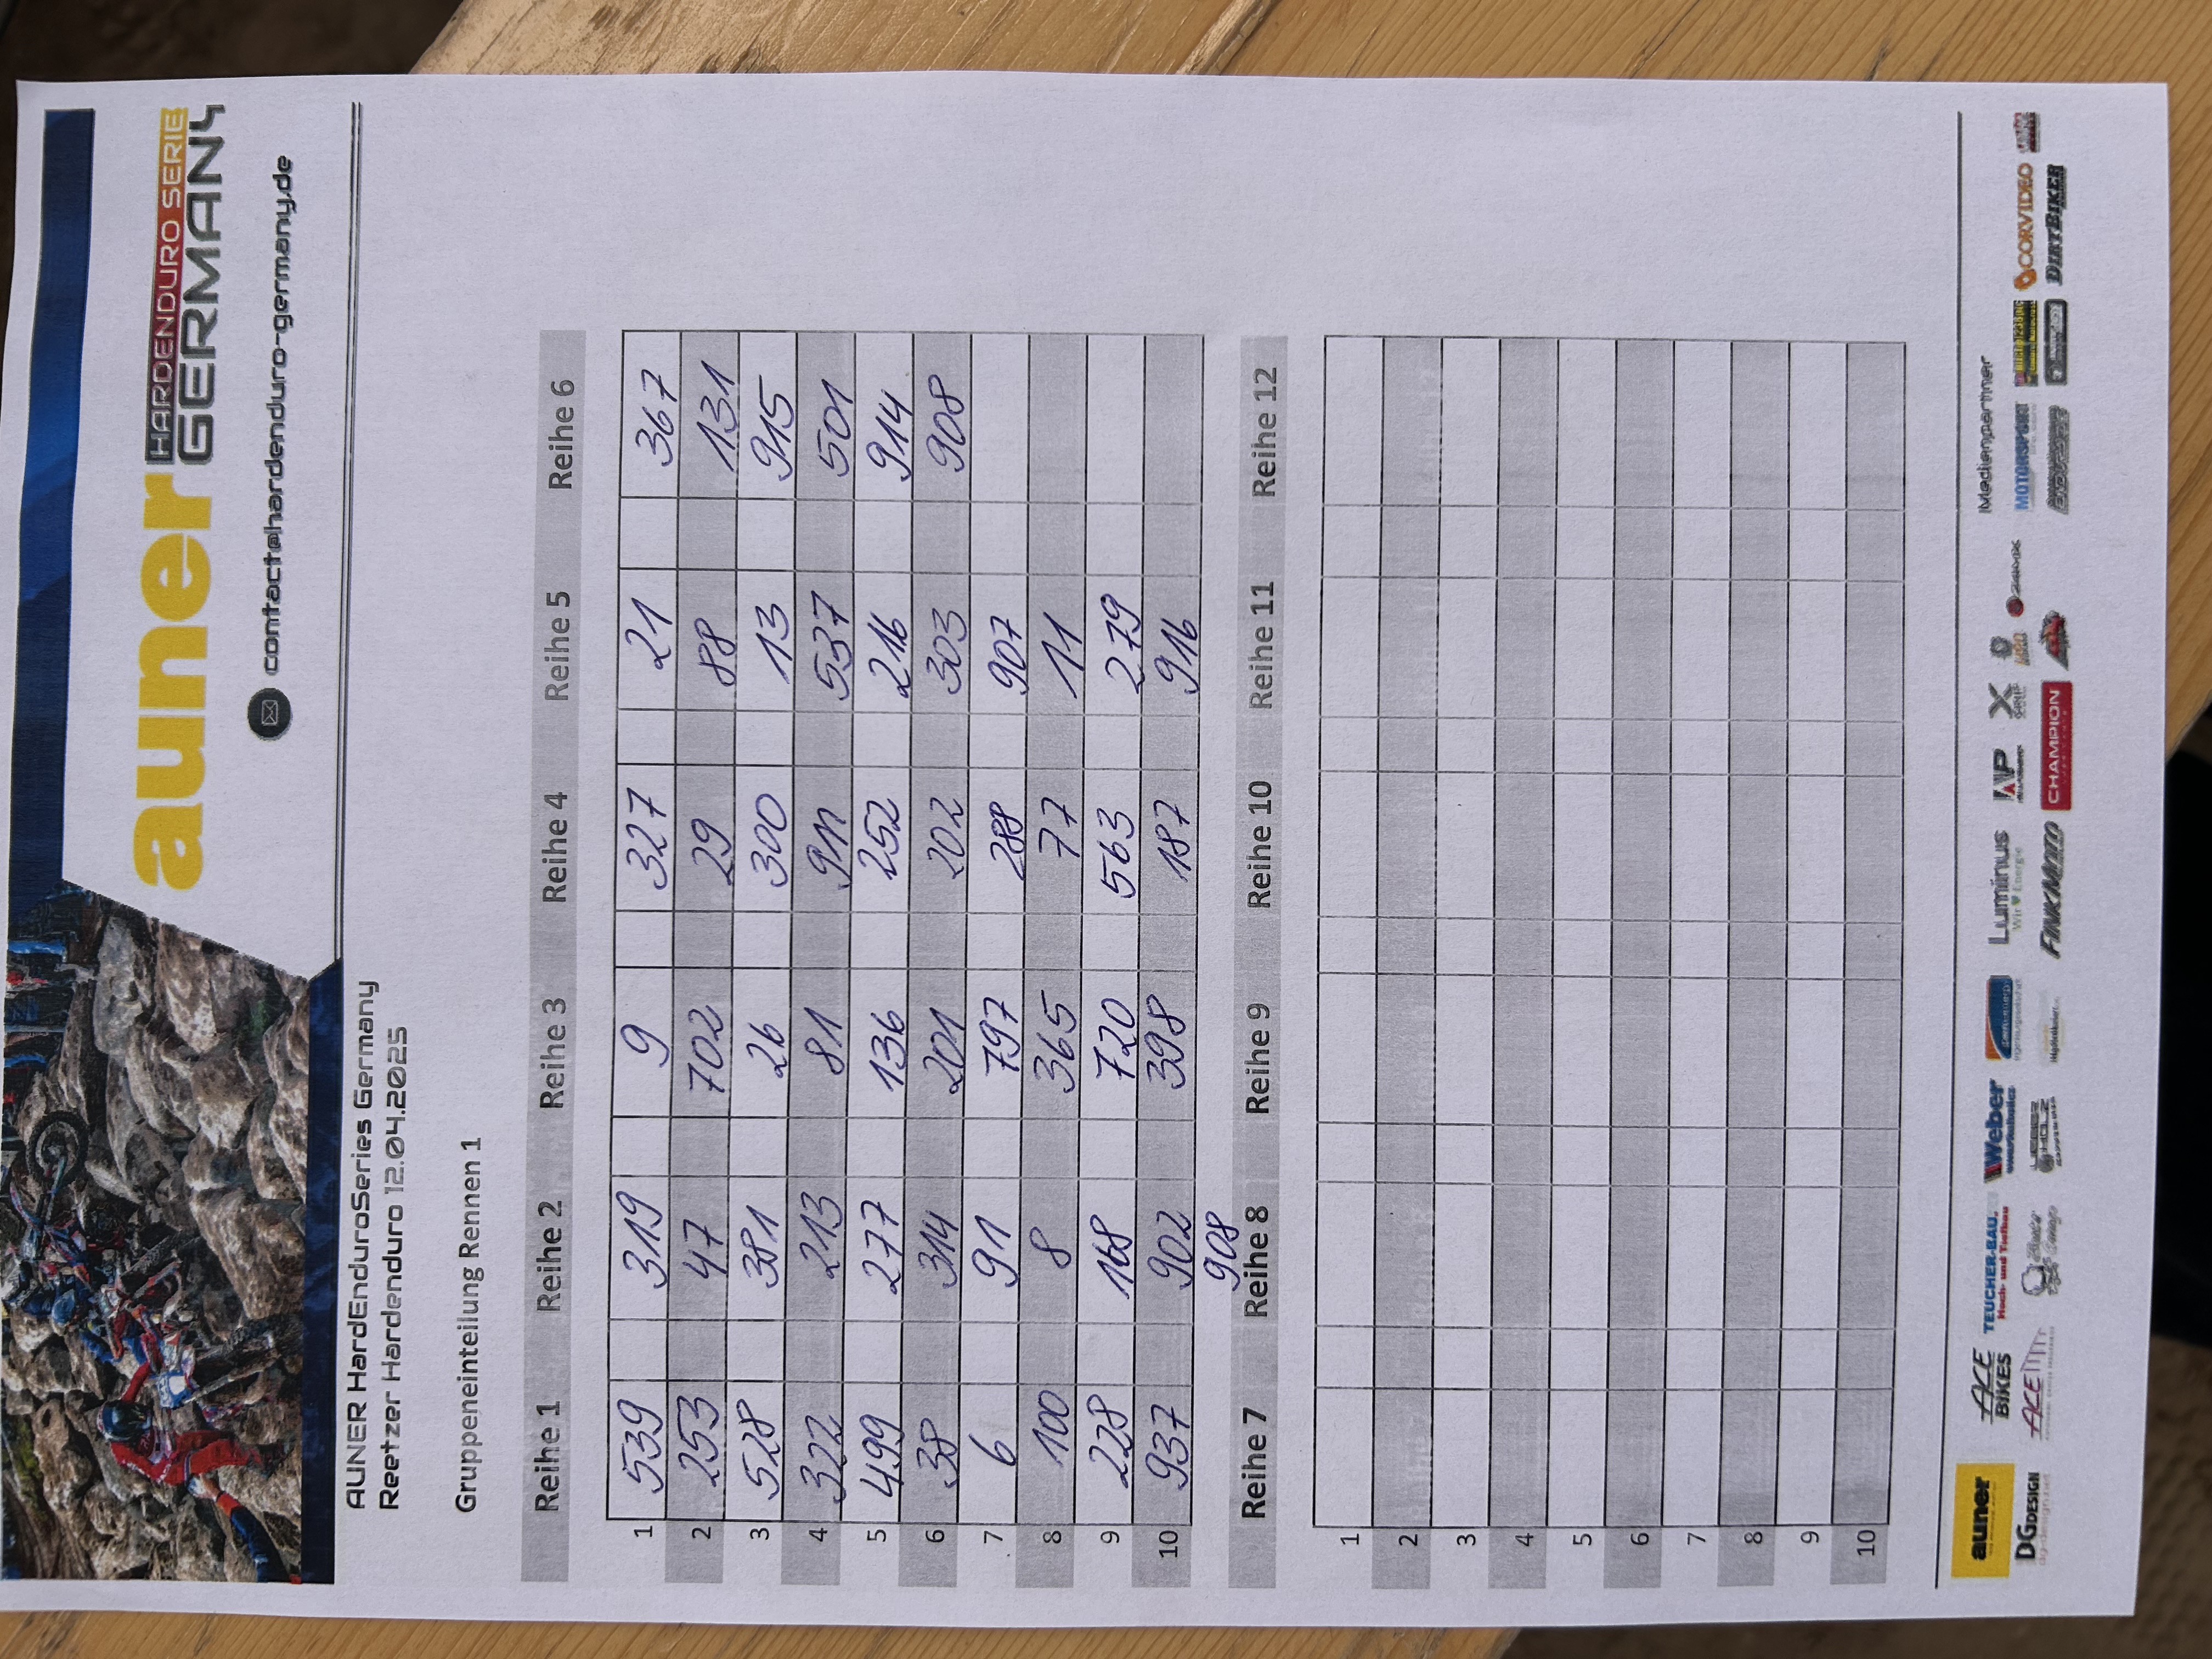 auner HARDENDURO SERIE
GERMANY
contact@hardenduro-germany.de
AUNER HardEnduroSeries Germany
Reetzer Hardenduro 12.04.2025
Gruppeneinteilung Rennen 1
Reihe 1 Reihe 2 Reihe 3 Reihe 4 Reihe 5 Reihe 6
1 539 319 9 327 21 367
2 253 47 702 29 88 131
3 528 381 26 300 13 915
4 322 213 81 911 537 501
5 499 277 136 252 216 914
6 38 314 201 202 303 908
7 6 91 797 288 907
8 100 8 365 77 11
9 228 168 720 563 279
10 937 902 398 187 916
908
Reihe 7 Reihe 8 Reihe 9 Reihe 10 Reihe 11 Reihe 12
1
2
3
4
5
6
7
8
9
10
Medienpartner
auner ACE BIKES TEUCHER-BAU. Hoch- und Tiefbau Weber Luminus Wir Energie AP X MOTORSPORT CORVIDEO
DG DESIGN ACE FINKMOTO CHAMPION DIRTBIKER